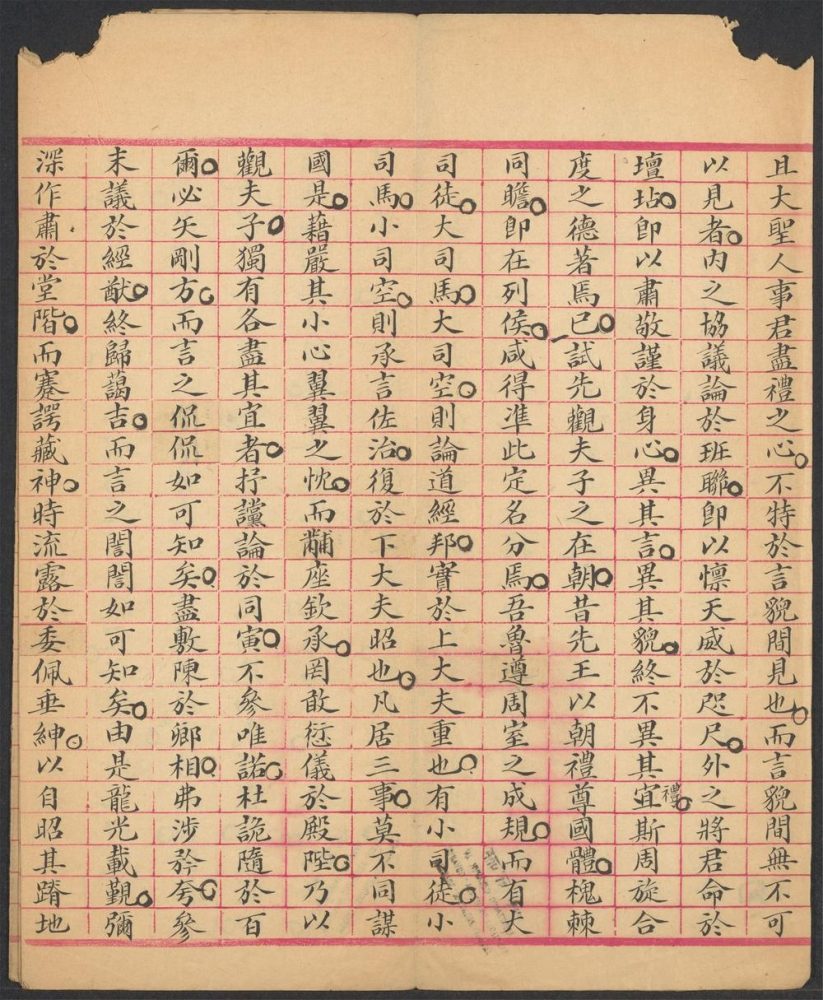 且大聖人事君盡禮之心。不特於言貌間見也。而言貌間無不可
以見者。內之協議論於班聯。即以懍天威於咫尺。外之將君命於
壇坫。即以肅敬謹於身心。異其言。異其貌。終不異其宜禮。斯周旋合
度之德著焉已。試先觀夫子之在朝。昔先王以朝禮尊國體。槐棘
同瞻。即在列侯。咸得准此定名分焉。吾魯遵周室之成規。而有大
司徒。大司馬。大司空。則論道經邦。實於上大夫重也。有小司徒。小
司馬。小司空。則承言佐治。復於下大夫昭也。凡居三事。莫不同謀
國是。藉嚴其小心翼翼之忱。而黼座欽承。罔敢愆儀於殿陛。乃以
觀夫子。獨有各盡其宜者。抒讜論於同寅。不參唯諾。杜詭隨於百
爾。必矢剛方。而言之侃侃如可知矣。盡敷陳於鄉相。弗涉矜夸。參
末議於經猷。終歸藹吉。而言之誾誾如可知矣。由是龍光載覲。彌
深作肅於堂階。而蹇諤藏神。時流露於委佩垂紳。以自昭其蹐地